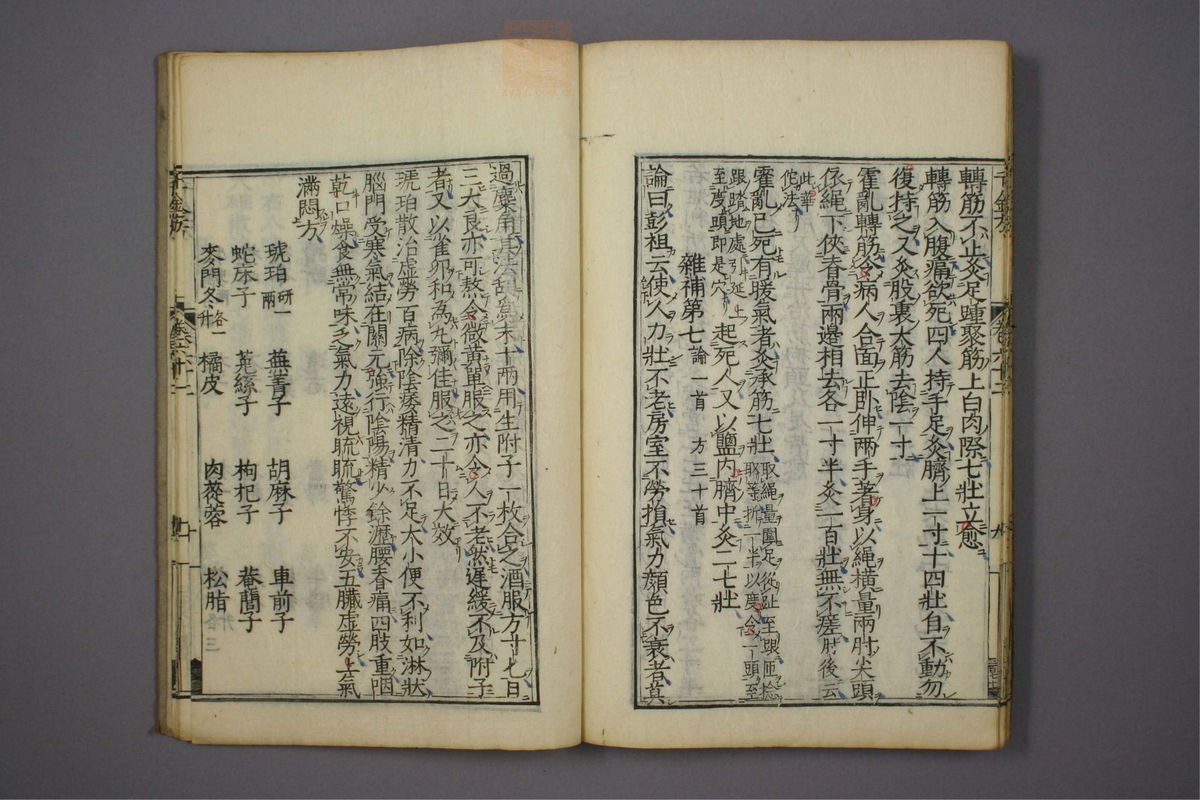 轉筋不止灸足踵聚筋上白肉際七壯立愈
轉筋入腹痛欲死四人持手足灸臍上一寸十四壯自不動勿
復持之又灸股裏大筋去陰一寸
霍亂轉筋令病人合面正臥伸兩手著身以繩橫量兩肘尖頭
依繩下俠脊骨兩邊相去各一寸半灸一百壯無不瘥肘後云
此華
佗法
霍亂已死有暖氣者灸承筋七壯取繩量圍足從趾至跟匝捻
取等折一半以度令一頭至
跟踏地處引延上
至度頭即是穴起死人又以鹽內臍中灸二七壯
雜補第七論一首 方三十首
論曰彭祖云使人力壯不老房室不勞損氣力顏色不衰者莫
過麋角其法刮為末十兩用生附子一枚合之酒服方寸七日
三大良亦可熬令微黃單服之亦令人不老然遲緩不及附子
者又以雀卵和為丸彌佳服之二十日大效
琥珀散治虛勞百病除陰痿精清力不足大小便不利如淋狀
腦門受寒氣結在關元強行陰陽精少餘瀝腰脊痛四肢重咽
乾口燥食無常味乏氣力遠視䀮䀮驚悸不安五臟虛勞上氣
滿悶方
琥珀研一兩 蕪菁子 胡麻子 車前子
蛇床子 菟絲子 枸杞子 菴䕡子
麥門冬各一升 橘皮 肉蓯蓉 松脂